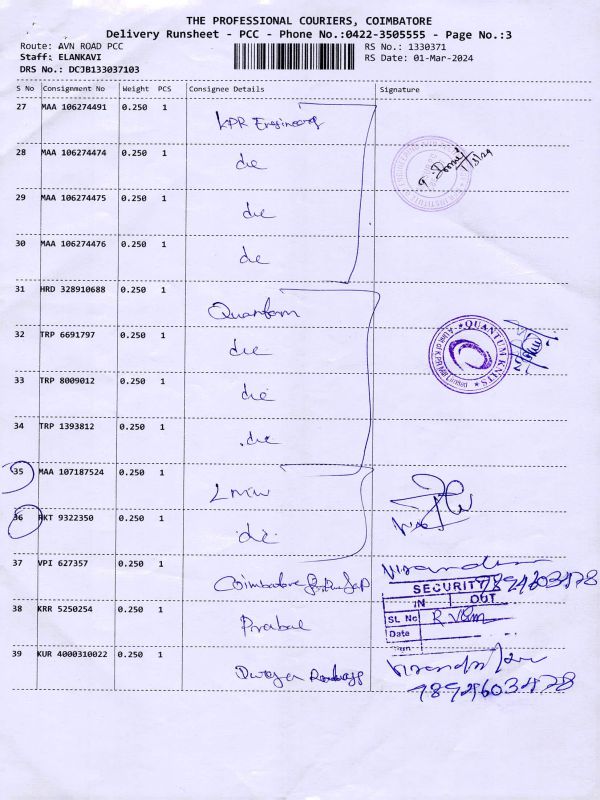 THE PROFESSIONAL COURIERS, COIMBATORE
Delivery Runsheet - PCC - Phone No.:0422-3505555 - Page No.:3
Route: AVN ROAD PCC
RS No.: 1330371
Staff: ELANKAVI
RS Date: 01-Mar-2024
DRS No.: DCJB133037103
S No Consignment No Weight PCS Consignee Details Signature
27 MAA 106274491 0.250 1
KPR Engineering
28 MAA 106274474 0.250 1
do
1/3/24
29 MAA 106274475 0.250 1
do
30 MAA 106274476 0.250 1
do
31 HRD 328910688 0.250 1
Quantum
32 TRP 6691797 0.250 1
do
QUANTUM KNITS
33 TRP 8009012 0.250 1
do
34 TRP 1393812 0.250 1
do
35 MAA 107187524 0.250 1
LMW
36 AKT 9322350 0.250 1
do
37 VPI 627357 0.250 1
Coimbatore
SECURITY
9894603478
IN OUT
38 KRR 5250254 0.250 1
Prabal
SL No
Date
Sign
39 KUR 4000310022 0.250 1
9894603478